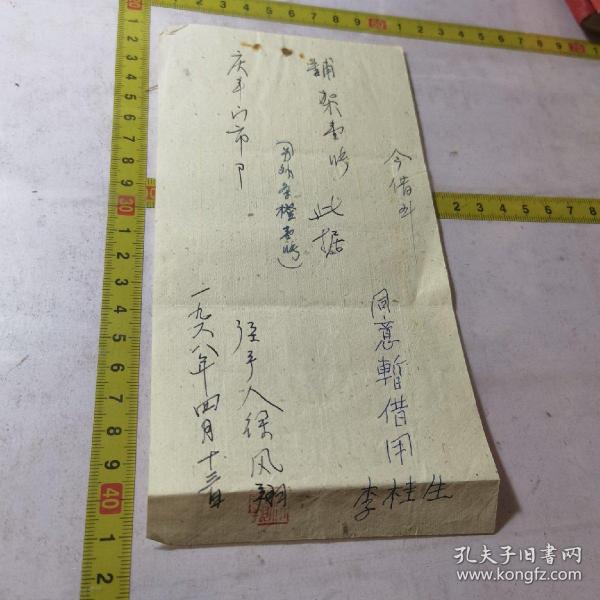 今借到
同意暫借用
李桂生
鋪架壹付 此据
(另外条櫈壹付)
庆丰门市卩
经手人徐风翔
一九六八年四月十三日
孔夫子旧书网
www.kongfz.com